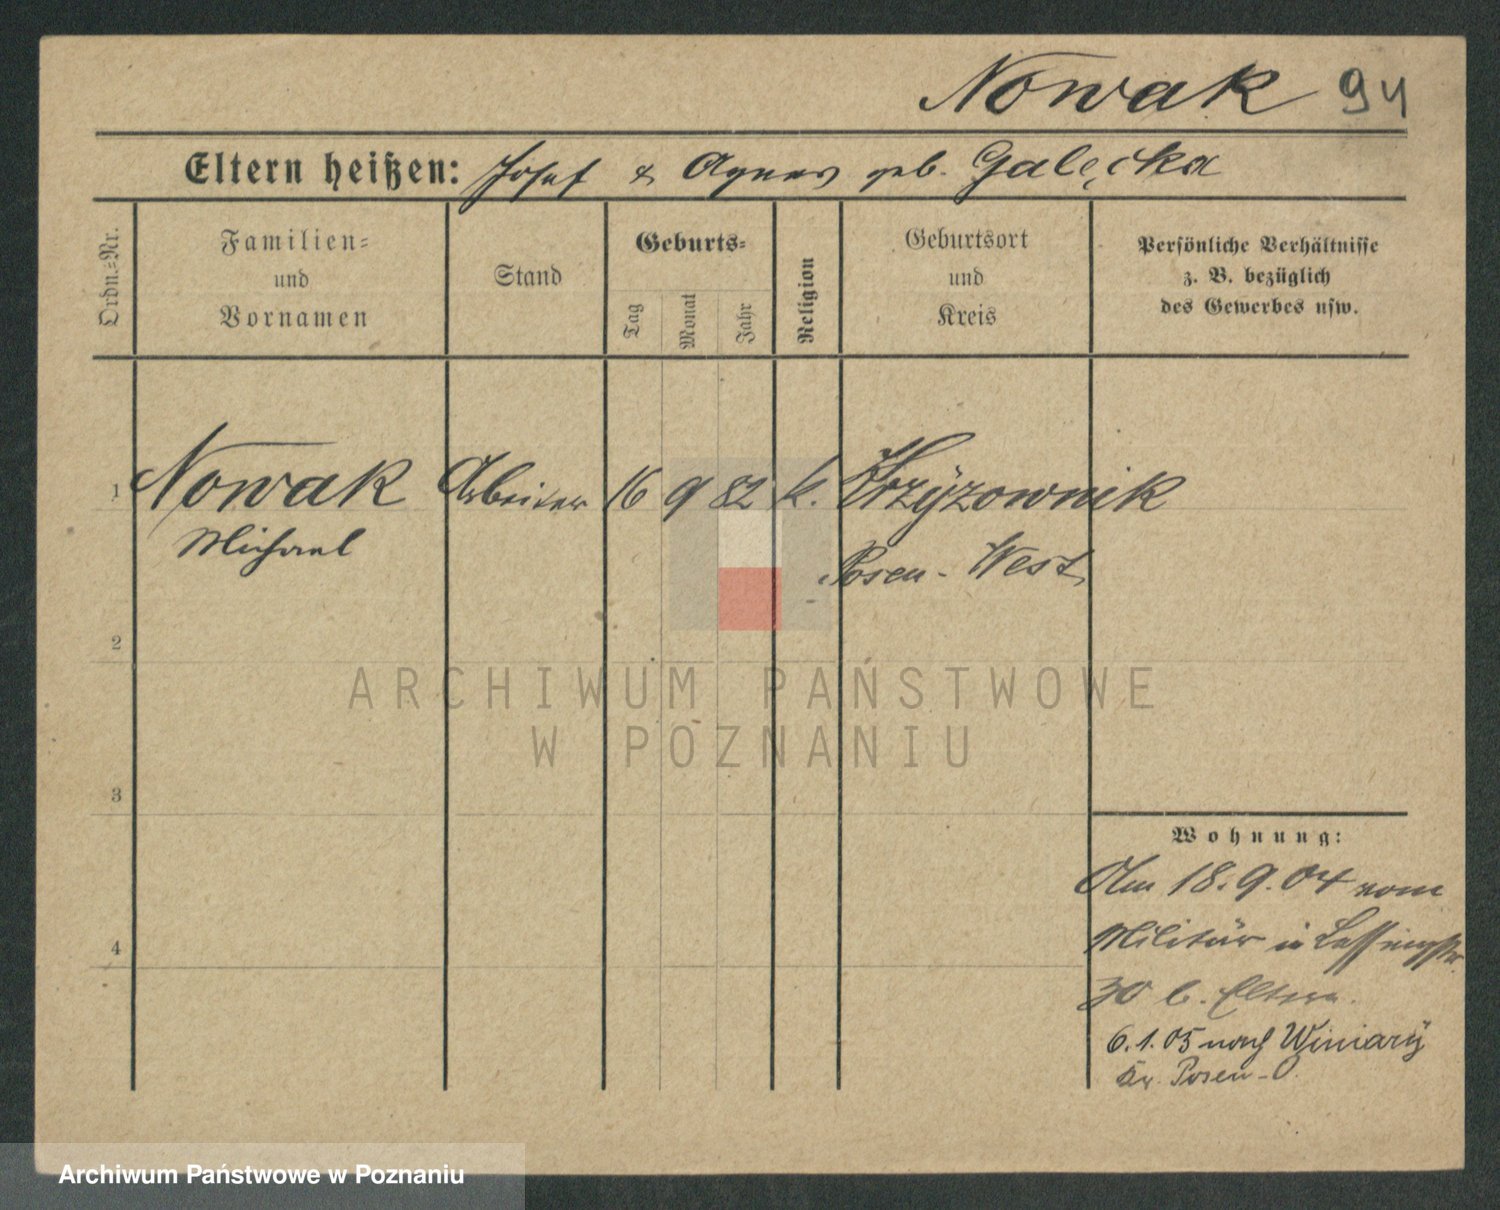 Nowak 94
Eltern heißen: Josef & Agnes geb. Gałęcka
Ordn.=Nr.
Familien=
und
Vornamen
Stand
Geburts=
Tag
Monat
Jahr
Religion
Geburtsort
und
Kreis
Persönliche Verhältnisse
z. B. bezüglich
des Gewerbes usw.
1 Nowak Arbeiter 16 9 82 k. Krzÿzownik
Michael Posen-West
2
ARCHIWUM PAŃSTWOWE
W POZNANIU
3
Wohnung:
Am 18.9.04 vom
Militär in Lessingstr.
30 b. Eltern.
4
6.1.05 nach Winiarÿ
Kr. Posen-O.
Archiwum Państwowe w Poznaniu